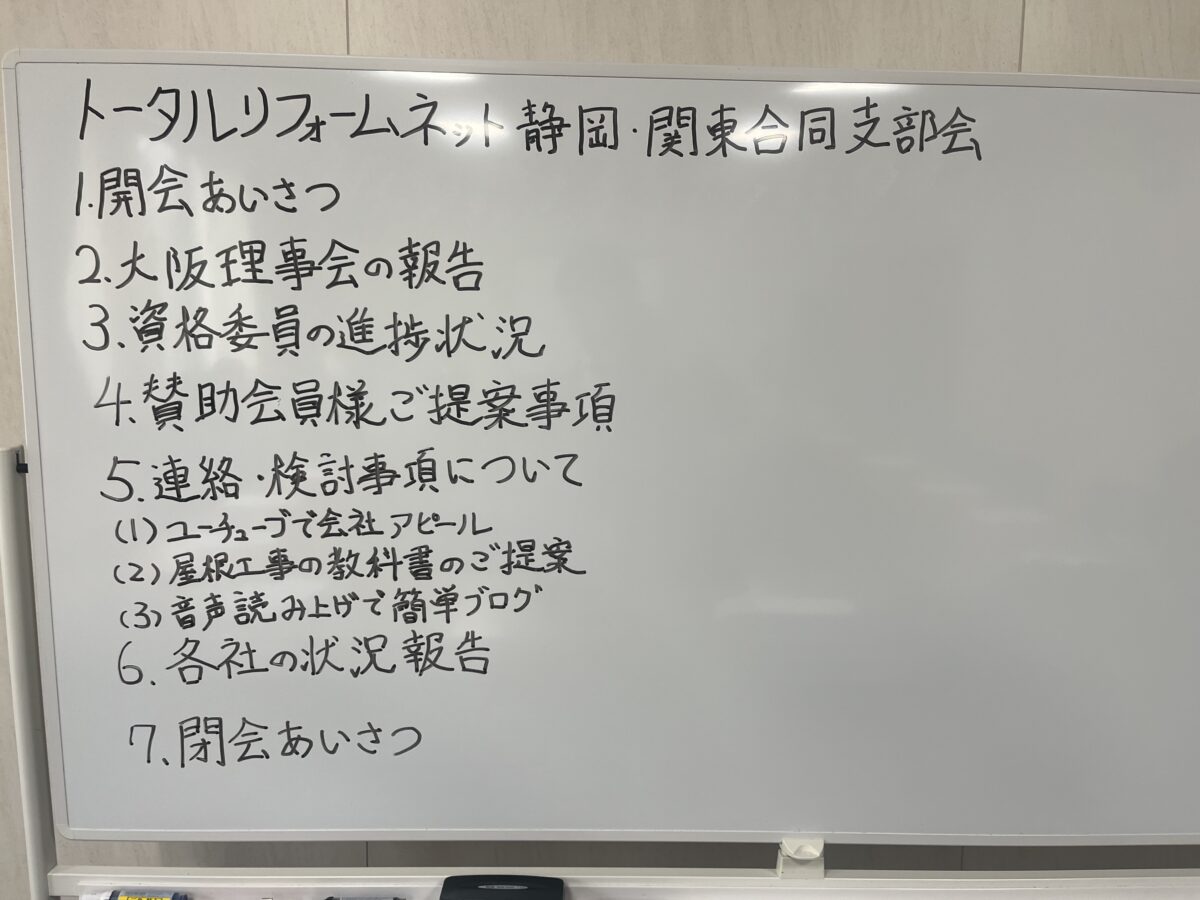 トータルリフォームネット静岡・関東合同支部会
1.開会あいさつ
2.大阪理事会の報告
3.資格委員の進捗状況
4.賛助会員様ご提案事項
5.連絡・検討事項について
(1)ユーチューブで会社アピール
(2)屋根工事の教科書のご提案
(3)音声読み上げで簡単ブログ
6.各社の状況報告
7.閉会あいさつ